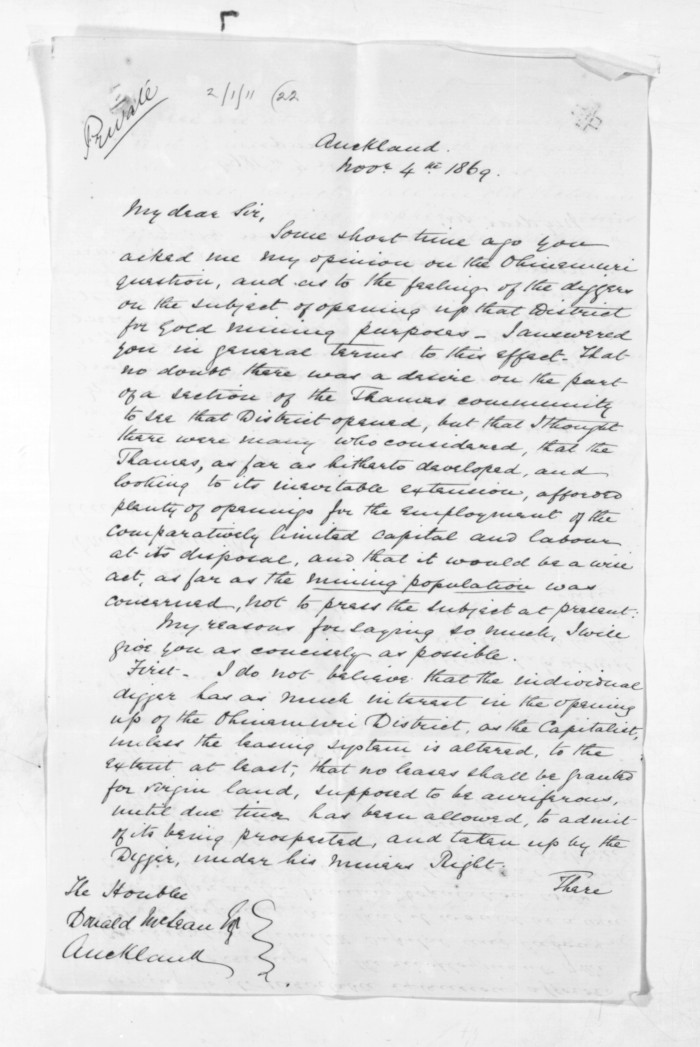 Private
2/1/11 (22
Auckland.
Novr 4th 1869.
My dear Sir,
Some short time ago you
asked me my opinion on the Ohinemuri
question, and as to the feeling of the diggers
on the subject of opening up that District
for Gold mining purposes - I answered
you in general terms to this effect - That
no doubt there was a desire on the part
of a section of the Thames community
to see that District opened, but that I thought
there were many who considered, that the
Thames, as far as hitherto developed, and
looking to its inevitable extension, afforded
plenty of openings for the employment of the
comparatively limited capital and labour
at its disposal, and that it would be a wise
act, as far as the mining population was
concerned, not to press the subject at present.
My reasons for saying so much, I will
give you as concisely as possible.
First - I do not believe that the individual
digger has as much interest in the opening
up of the Ohinemuri District, as the Capitalist,
unless the leasing system is altered, to the
extent at least, that no leases shall be granted
for virgin land, supposed to be auriferous,
until due time has been allowed, to admit
of its being prospected, and taken up by the
Digger, under his Miners Right.
There
The Honble
Donald McLean Esq
Auckland